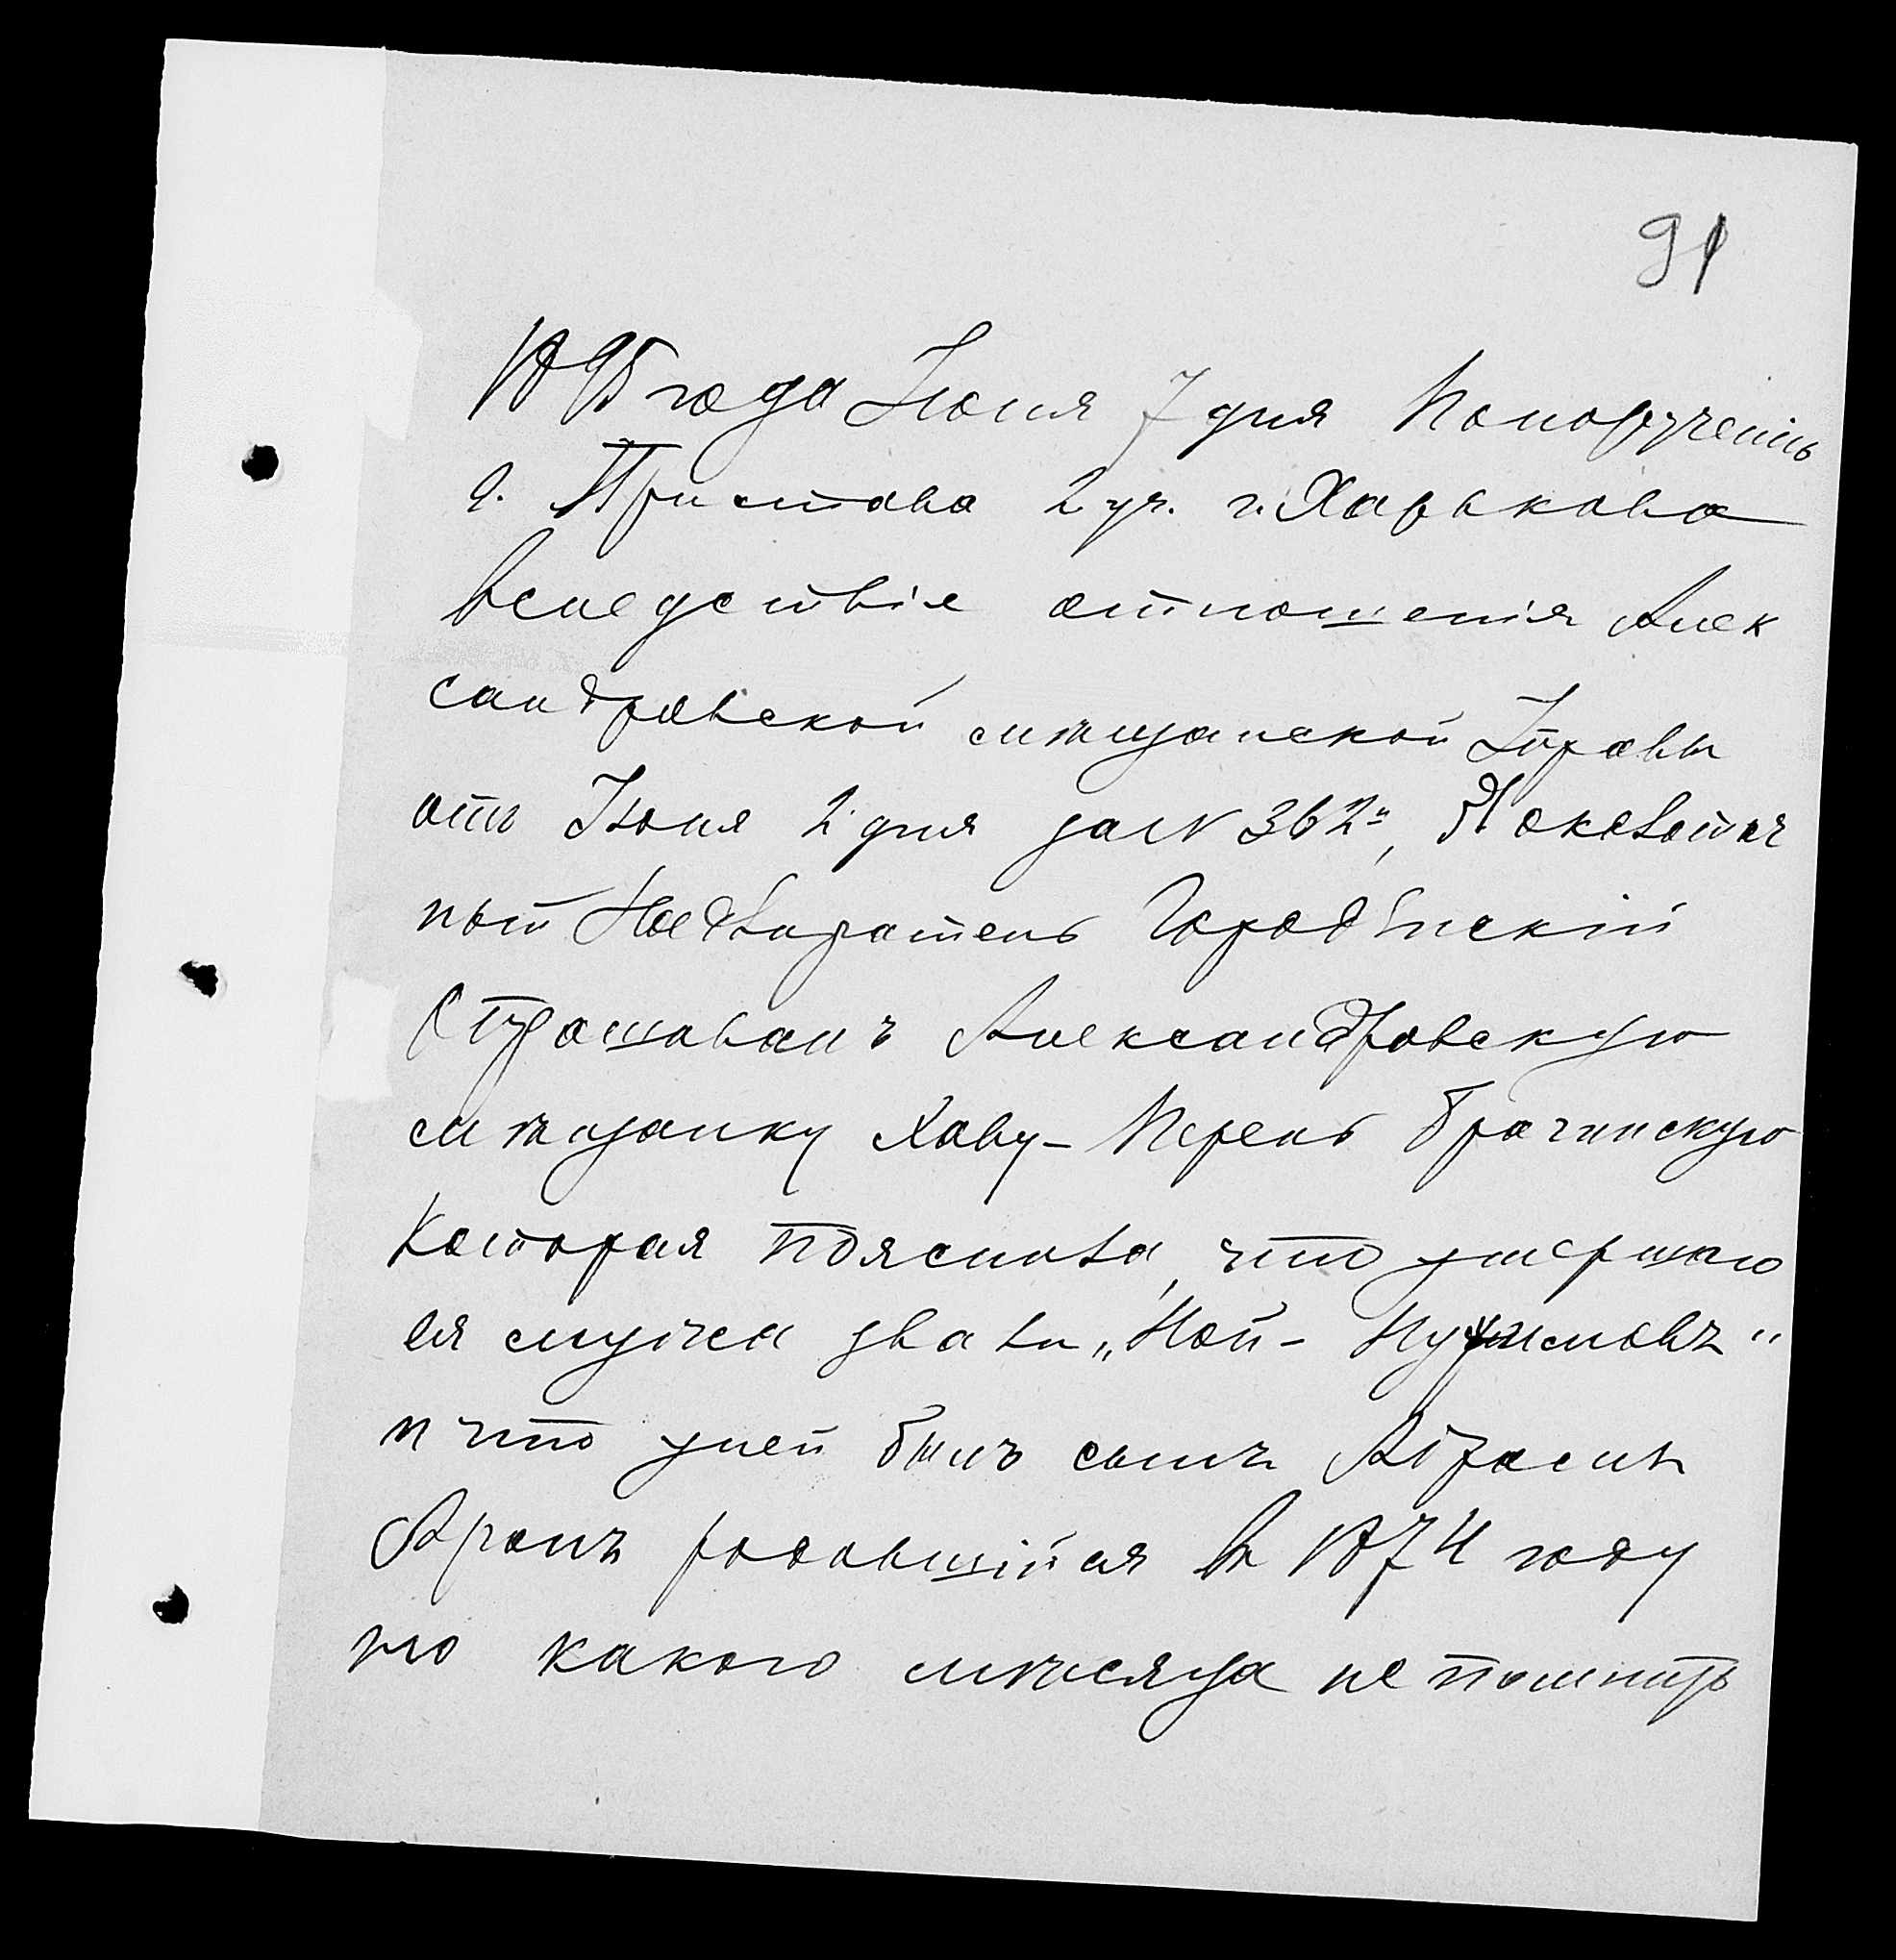 91
1895 года Июня 7 дня Попоручение
г. Пристава 2 уч. г. Харькова
вследствіе отношенія Алек
сандровской мѣщанской Управы
отъ Июня 2 дня за № 362, Околоточ
ный Надзиратель Городенскій
Спрашивалъ Александровскую
мѣщанку Хаву-Перель Брагинскую
Которая пояснила, что умершаго
ея мужа звали „Ной- Нухимовъ“
и что у ней былъ сынъ
Аронъ родовшійся въ 1874 году
но какого мѣсяца не помнитъ